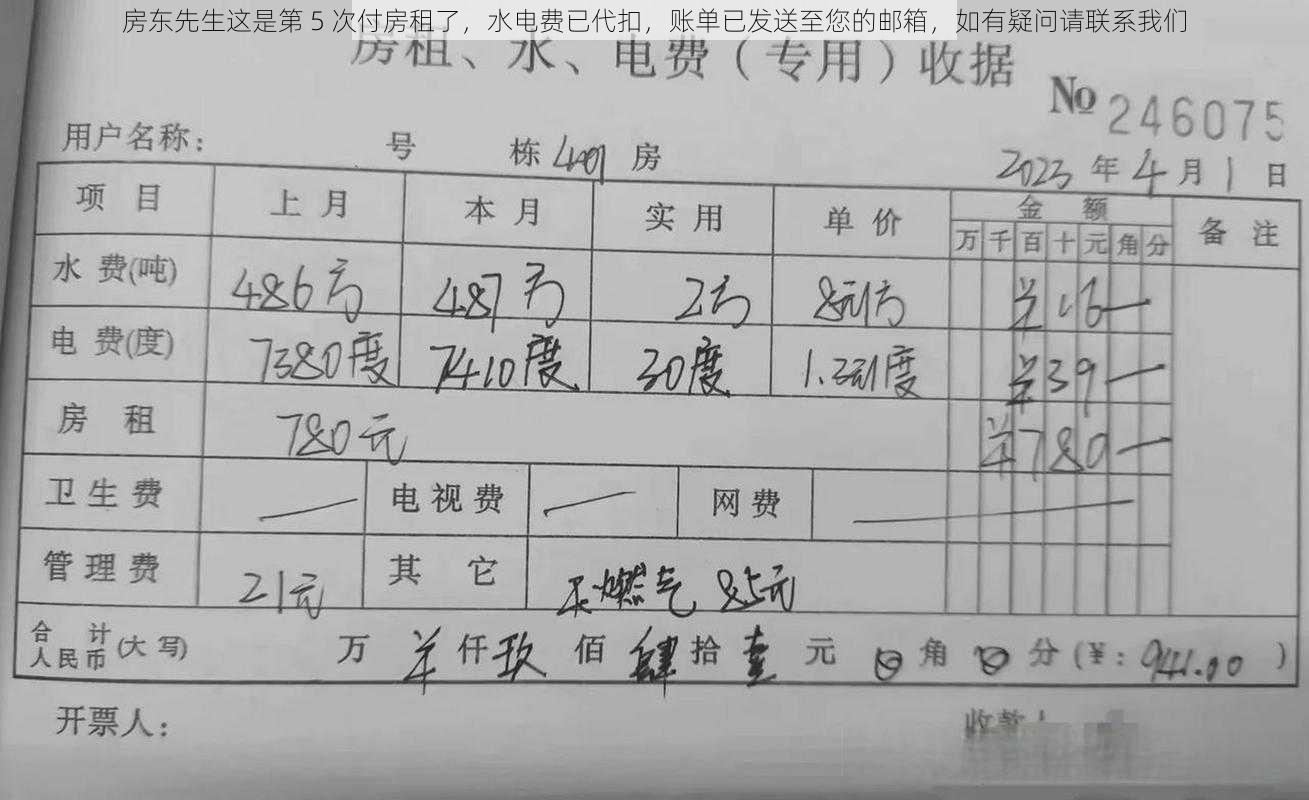 房东先生这是第 5 次付房租了，水电费已代扣，账单已发送至您的邮箱，如有疑问请联系我们
房租、水、电费（专用）收据
№ 246075
用户名称： 号 栋 401 房 2023 年 4 月 1 日
项 目 上 月 本 月 实 用 单 价 金 额 备 注
万 千 百 十 元 角 分
水 费(吨) 486方 487方 2方 8元/方 ¥16—
电 费(度) 7380度 7410度 30度 1.3元/度 ¥39—
房 租 780元 ¥780—
卫生费 — 电视费 — 网费 —
管理费 21元 其 它 燃气 85元
合 计 人民币 (大 写) 万 ¥ 仟 玖 佰 肆 拾 壹 元 0 角 0 分 (¥: 941.00 )
开票人： 收款人